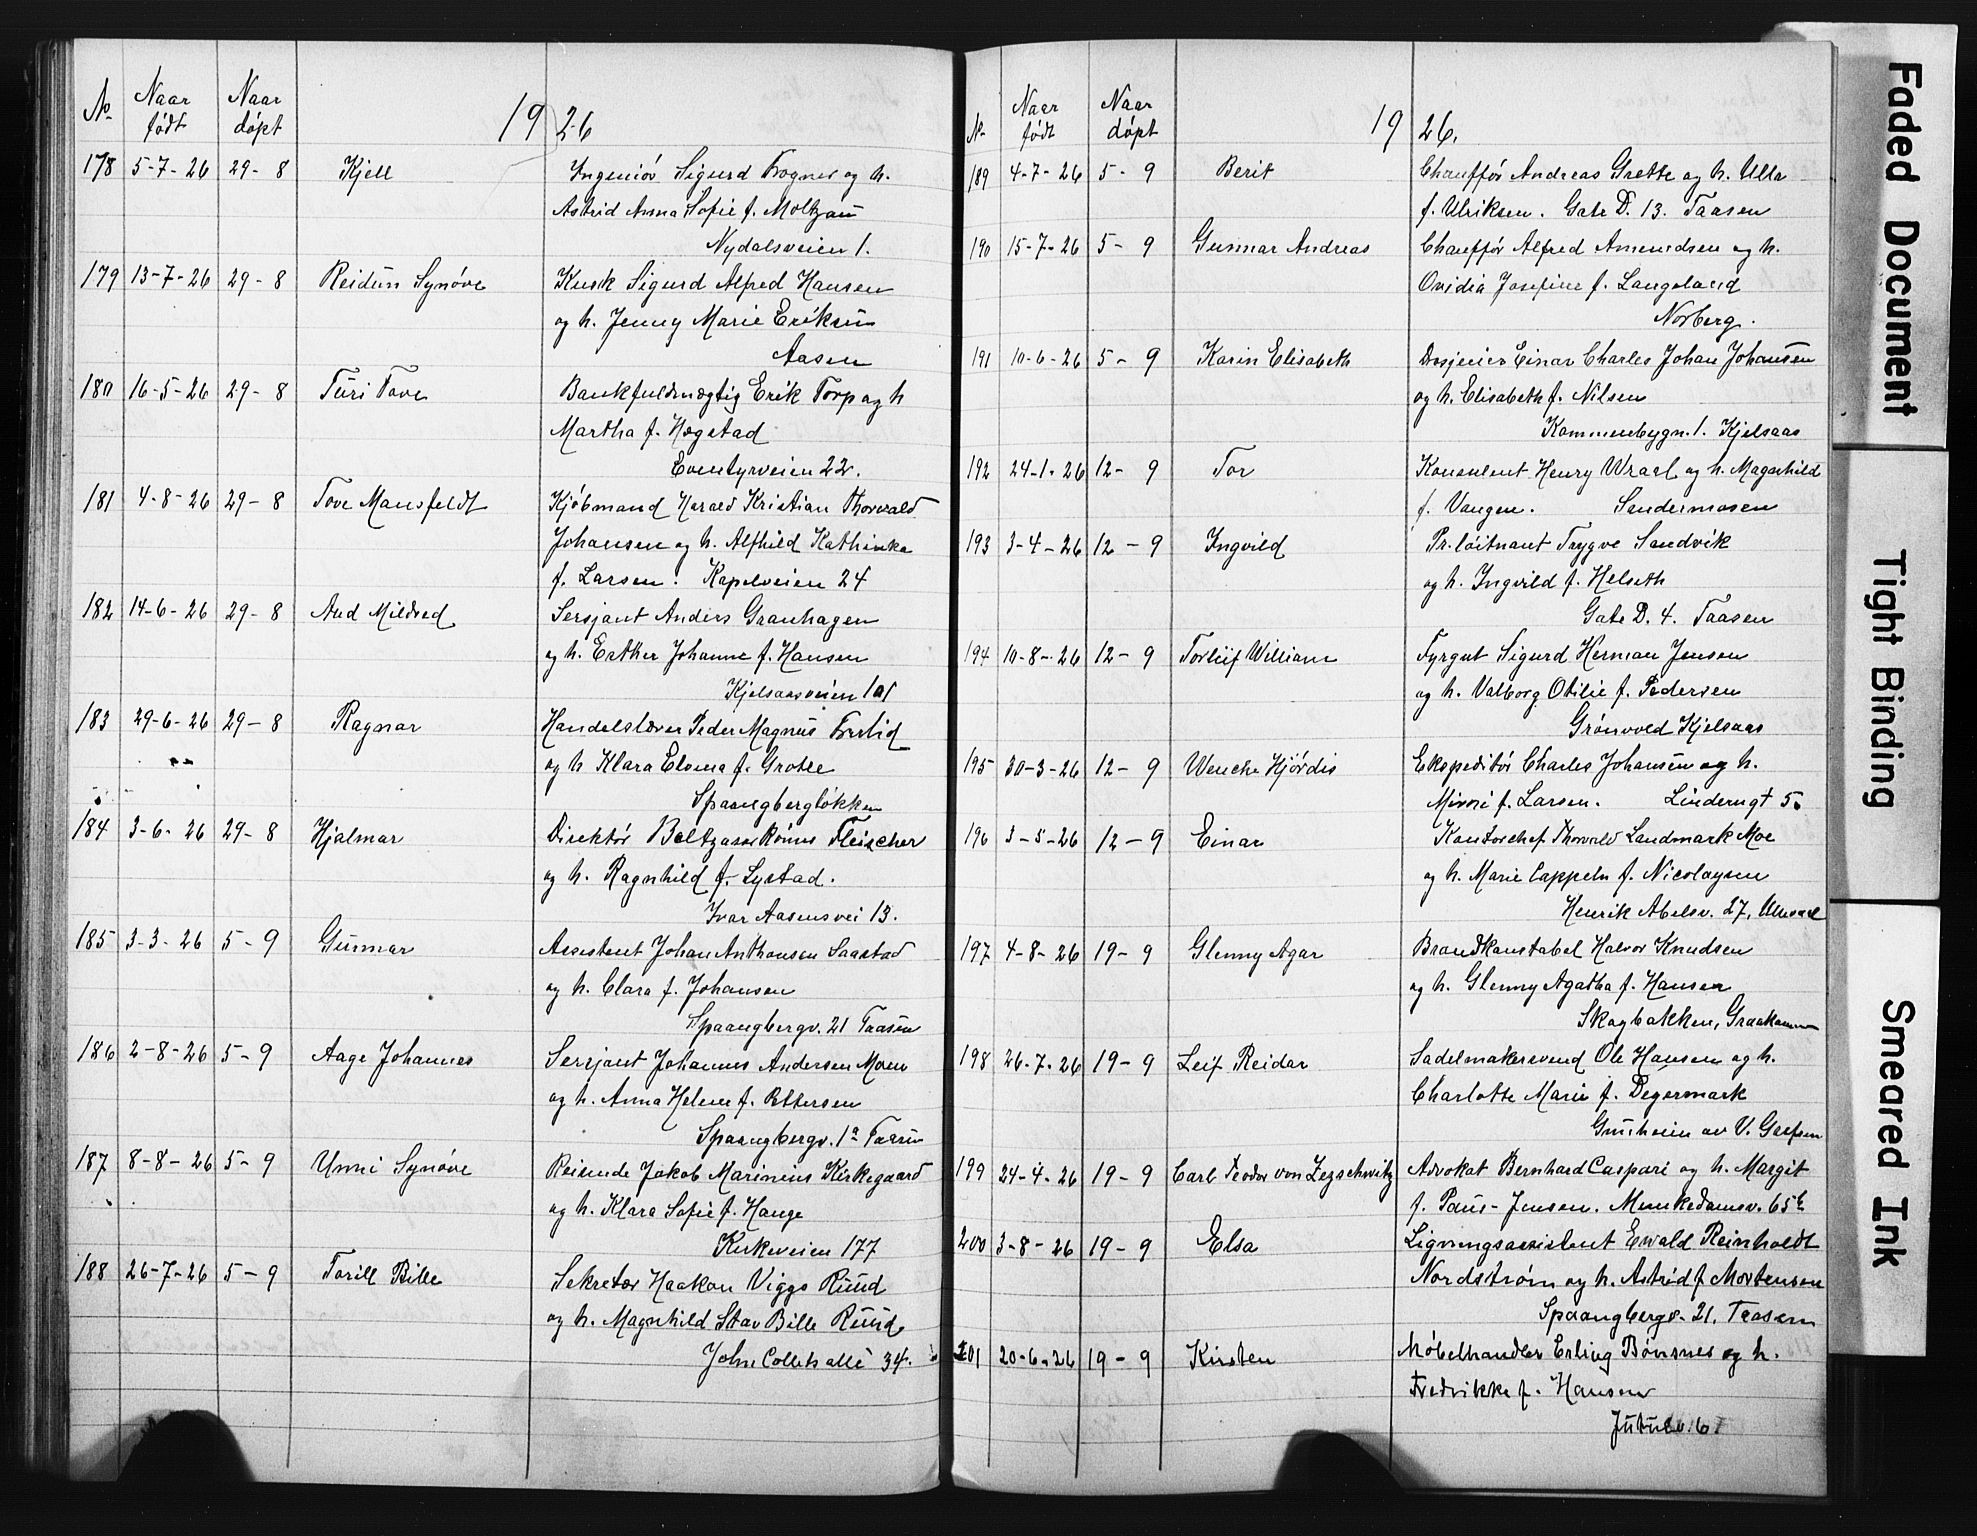 No Naar født Naar døpt 1926
178 5-7-26 29-8 Kjell Ingeniør Sigurd Frogner og h.
Astrid Anna Sofie f. Moltzau
Nydalsveien 1.
179 13-7-26 29-8 Reidun Synøve Kusk Sigurd Alfred Hansen
og h. Jenny Marie Eriksen
Aasen
180 16-5-26 29-8 Turi Tove Bankfuldmægtig Erik Torp og h
Martha f. Hegstad
Eventyrveien 22.
181 4-8-26 29-8 Tove Mansfeldt Kjøbmand Harald Kristian Thorvald
Johansen og h. Alfhild Kathinka
f. Larsen. Kapelveien 24
182 14-6-26 29-8 Aud Mildred Sersjant Anders Granhagen
og h. Esther Johanne f. Hansen
Kjelsaasveien 101
183 29-6-26 29-8 Ragnar Handelslærer Peder Magnus
og h Klara f. Grotle
Spaangbergløkken
184 3-6-26 29-8 Hjalmar Direktør Baltzasar Fleischer
og h. Ragnhild f. Lystad.
Ivar Aasensvei 13.
185 3-3-26 5-9 Gunnar Assistent Johan Anthonsen Saastad
og h. Clara f. Johansen
Spaangbergv. 21 Taasen
186 2-8-26 5-9 Aage Johannes Sersjant Johannes Andersen Moen
og h. Anna Helene f. Pettersen
Spaangbergv. 1a Taasen
187 8-8-26 5-9 Unni Synøve Reisende Jakob Marinius Kirkegaard
og h. Klara Sofie f. Hauge
Kirkeveien 177
188 26-7-26 5-9 Torill Bille Sekretær Haakon Viggo Ruud
og h. Magnhild Stav Bille Ruud
John Colletts allé 34.
No Naar født Naar døpt 1926.
189 4-7-26 5-9 Berit Chauffør Andreas Grette og h. Ulla
f. Ulriksen. Gate D. 13. Taasen
190 15-7-26 5-9 Gunnar Andreas Chauffør Alfred Amundsen og h.
Ovidia Josefine f. Langeland
Norberg.
191 10-6-26 5-9 Karin Elisabeth Drosjeeier Einar Charles Johan Johansen
og h. Elisabeth f. Nilsen
Kommunebygn. 1. Kjelsaas
192 24-1-26 12-9 Tor Konsulent Henry og h. Magnhild
f. Vangen. Sandermosen
193 3-4-26 12-9 Ingvild Pr. løitnant Trygve Sandvik
og h. Ingvild f. Helseth
Gate D. 4. Taasen
194 10-8-26 12-9 Torleif William Fyrgut Sigurd Herman Jensen
og h. Valborg Otilie f. Pedersen
Grønvold Kjelsaas
195 30-3-26 12-9 Wenche Hjørdis Ekspeditør Charles Johansen og h.
Mirsri f. Larsen. Linderngt 5.
196 3-5-26 12-9 Einar Kontorchef Thorvald Landmark Moe
og h. Marie Cappeln f. Nicolaysen
Henrik Abelsv. 27, Ullevaal
197 4-8-26 19-9 Glenny Agar Brandkonstabel Halvor Knudsen
og h. Glenny Agatha f. Hansen
Skogbakken, Graakammen
198 26-7-26 19-9 Leif Reidar Sadelmakersvend Ole Hansen og h.
Charlotte Marie f. Degermark
av V. Grefsen
199 24-4-26 19-9 Carl Teodor von Zezschwitz Advokat Bernhard Caspari og h. Margit
f. Paus-Jensen. Munkedamsv. 65b
200 3-8-26 19-9 Elsa Ligningsassistent Ewald Reinholdt
Nordstrøm og h. Astrid f Mortensen
Spaangbergv. 21. Taasen
201 20-6-26 19-9 Kirsten Møbelhandler Erling Bønsnes og h.
Fredrikke f. Hansen
Jutulv. 6
Faded Document
Tight Binding
Smeared Ink